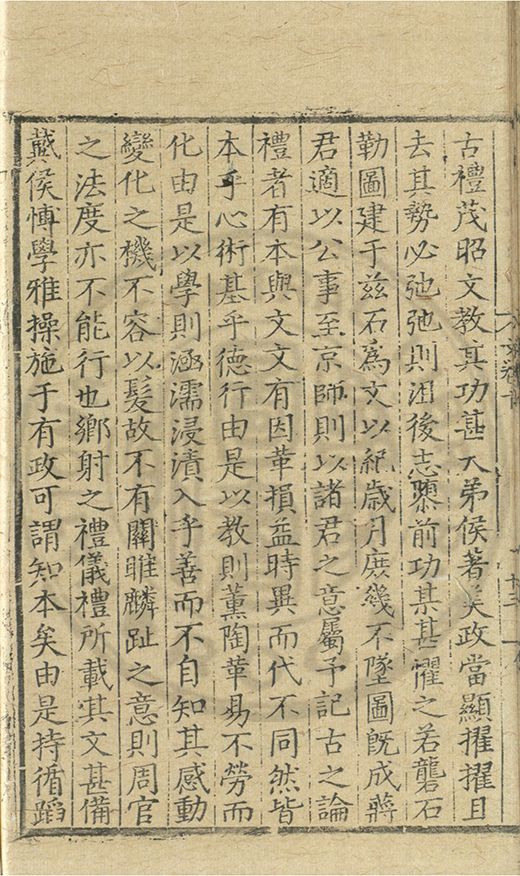 古禮茂昭文教其功甚大弟侯著美政當顯擢擢且
去其勢必弛弛則沮後志隳前功某甚懼之若礱石
勒圖建于兹石爲文以紀歲月庶幾不墜圖旣成蔣
君適以公事至京師則以諸君之意屬予記古之論
禮者有本與文文有因革損益時異而代不同然皆
本乎心術基乎德行由是以教則薰陶革易不勞而
化由是以學則涵濡浸漬入乎善而不自知其感動
變化之機不容以髮故不有關雎麟趾之意則周官
之法度亦不能行也鄉射之禮儀禮所載其文甚備
戴侯博學雅操施于有政可謂知本矣由是持循蹈